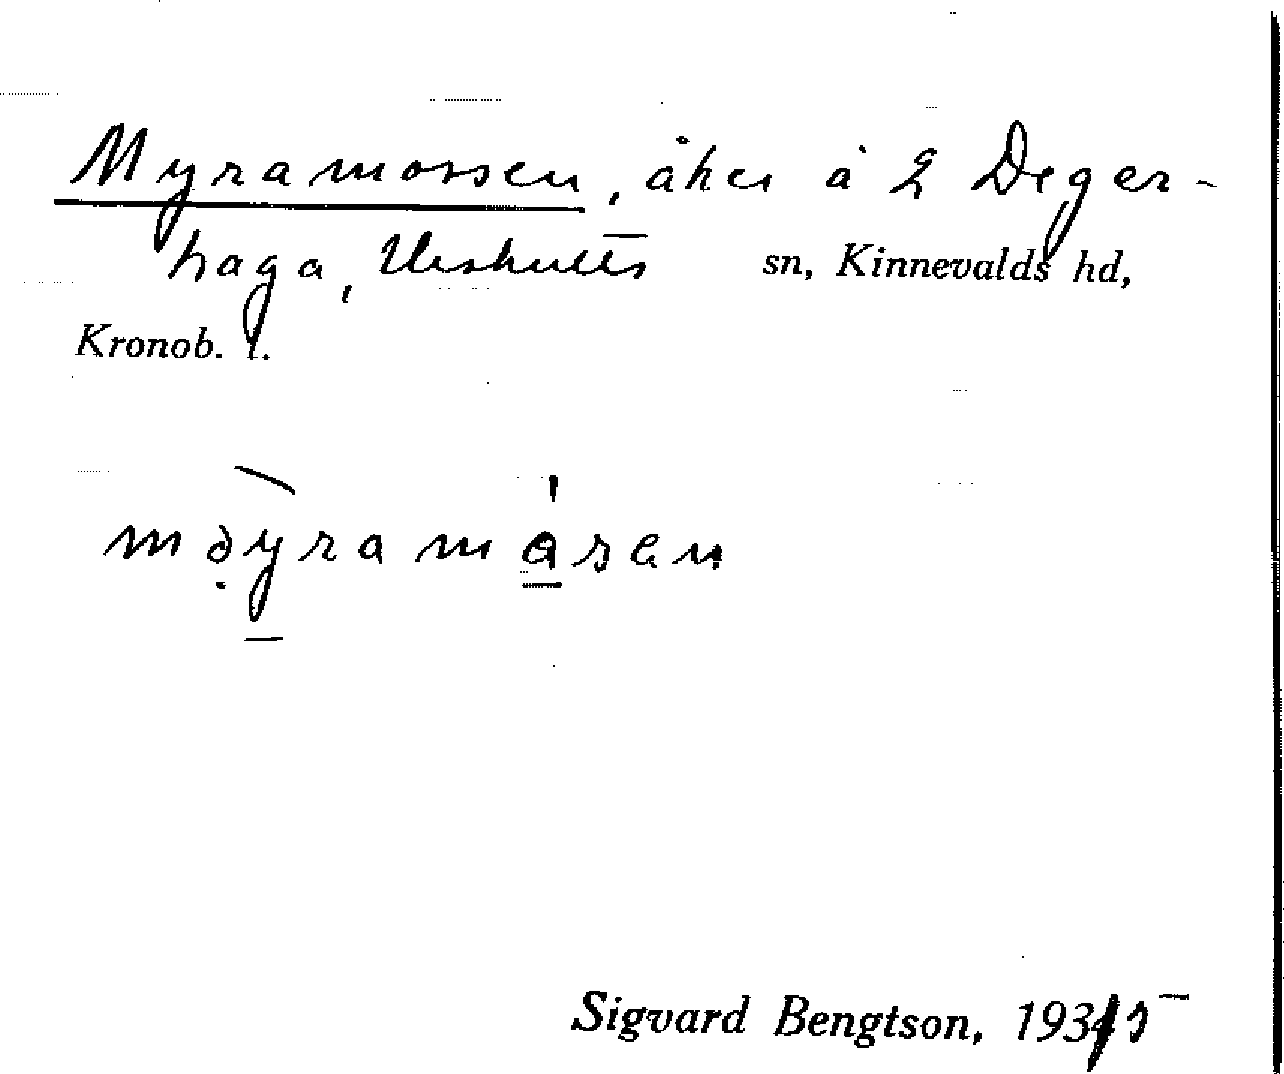 Myramossen, åker å 2 Deger-
haga, Urshults sn, Kinnevalds hd,
Kronob. l.
məyramåsen
Sigvard Bengtson, 1935